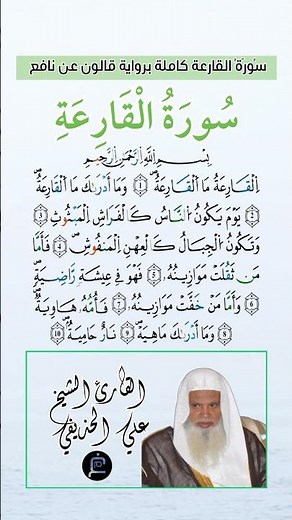 سورة القارعة كاملة برواية قالون عن نافع
سُورَةُ الْقَارِعَةِ
بِسْمِ اللَّهِ الرَّحْمَٰنِ الرَّحِيمِ
اِ۬لْقَارِعَةُ مَا اَ۬لْقَارِعَةُۖ ١ وَمَا أَدْر۪ىٰكَ مَا اَ۬لْقَارِعَةُۖ
٢ يَوْمَ يَكُونُ اُ۬لنَّاسُ كَالْفَرَاشِ اِ۬لْمَبْثُوثِ ٣
وَتَكُونُ اُ۬لْجِبَالُ كَالْعِهْنِ اِ۬لْمَنفُوشِۖ ٤ فَأَمَّا
مَن ثَقُلَتْ مَوَٰزِينُهُۥ ٥ فَهْوَ فِي عِيشَةٖ رَّاضِيَةٖۖ
٦ وَأَمَّا مَنْ خَفَّتْ مَوَٰزِينُهُۥ ٧ فَأُمُّهُۥ هَاوِيَةٞۖ
٨ وَمَا أَدْر۪ىٰكَ مَاهِيَهْۖ ٩ نَارٌ حَامِيَةُۢۖ ١٠
القارئ الشيخ
علي الحذيفي